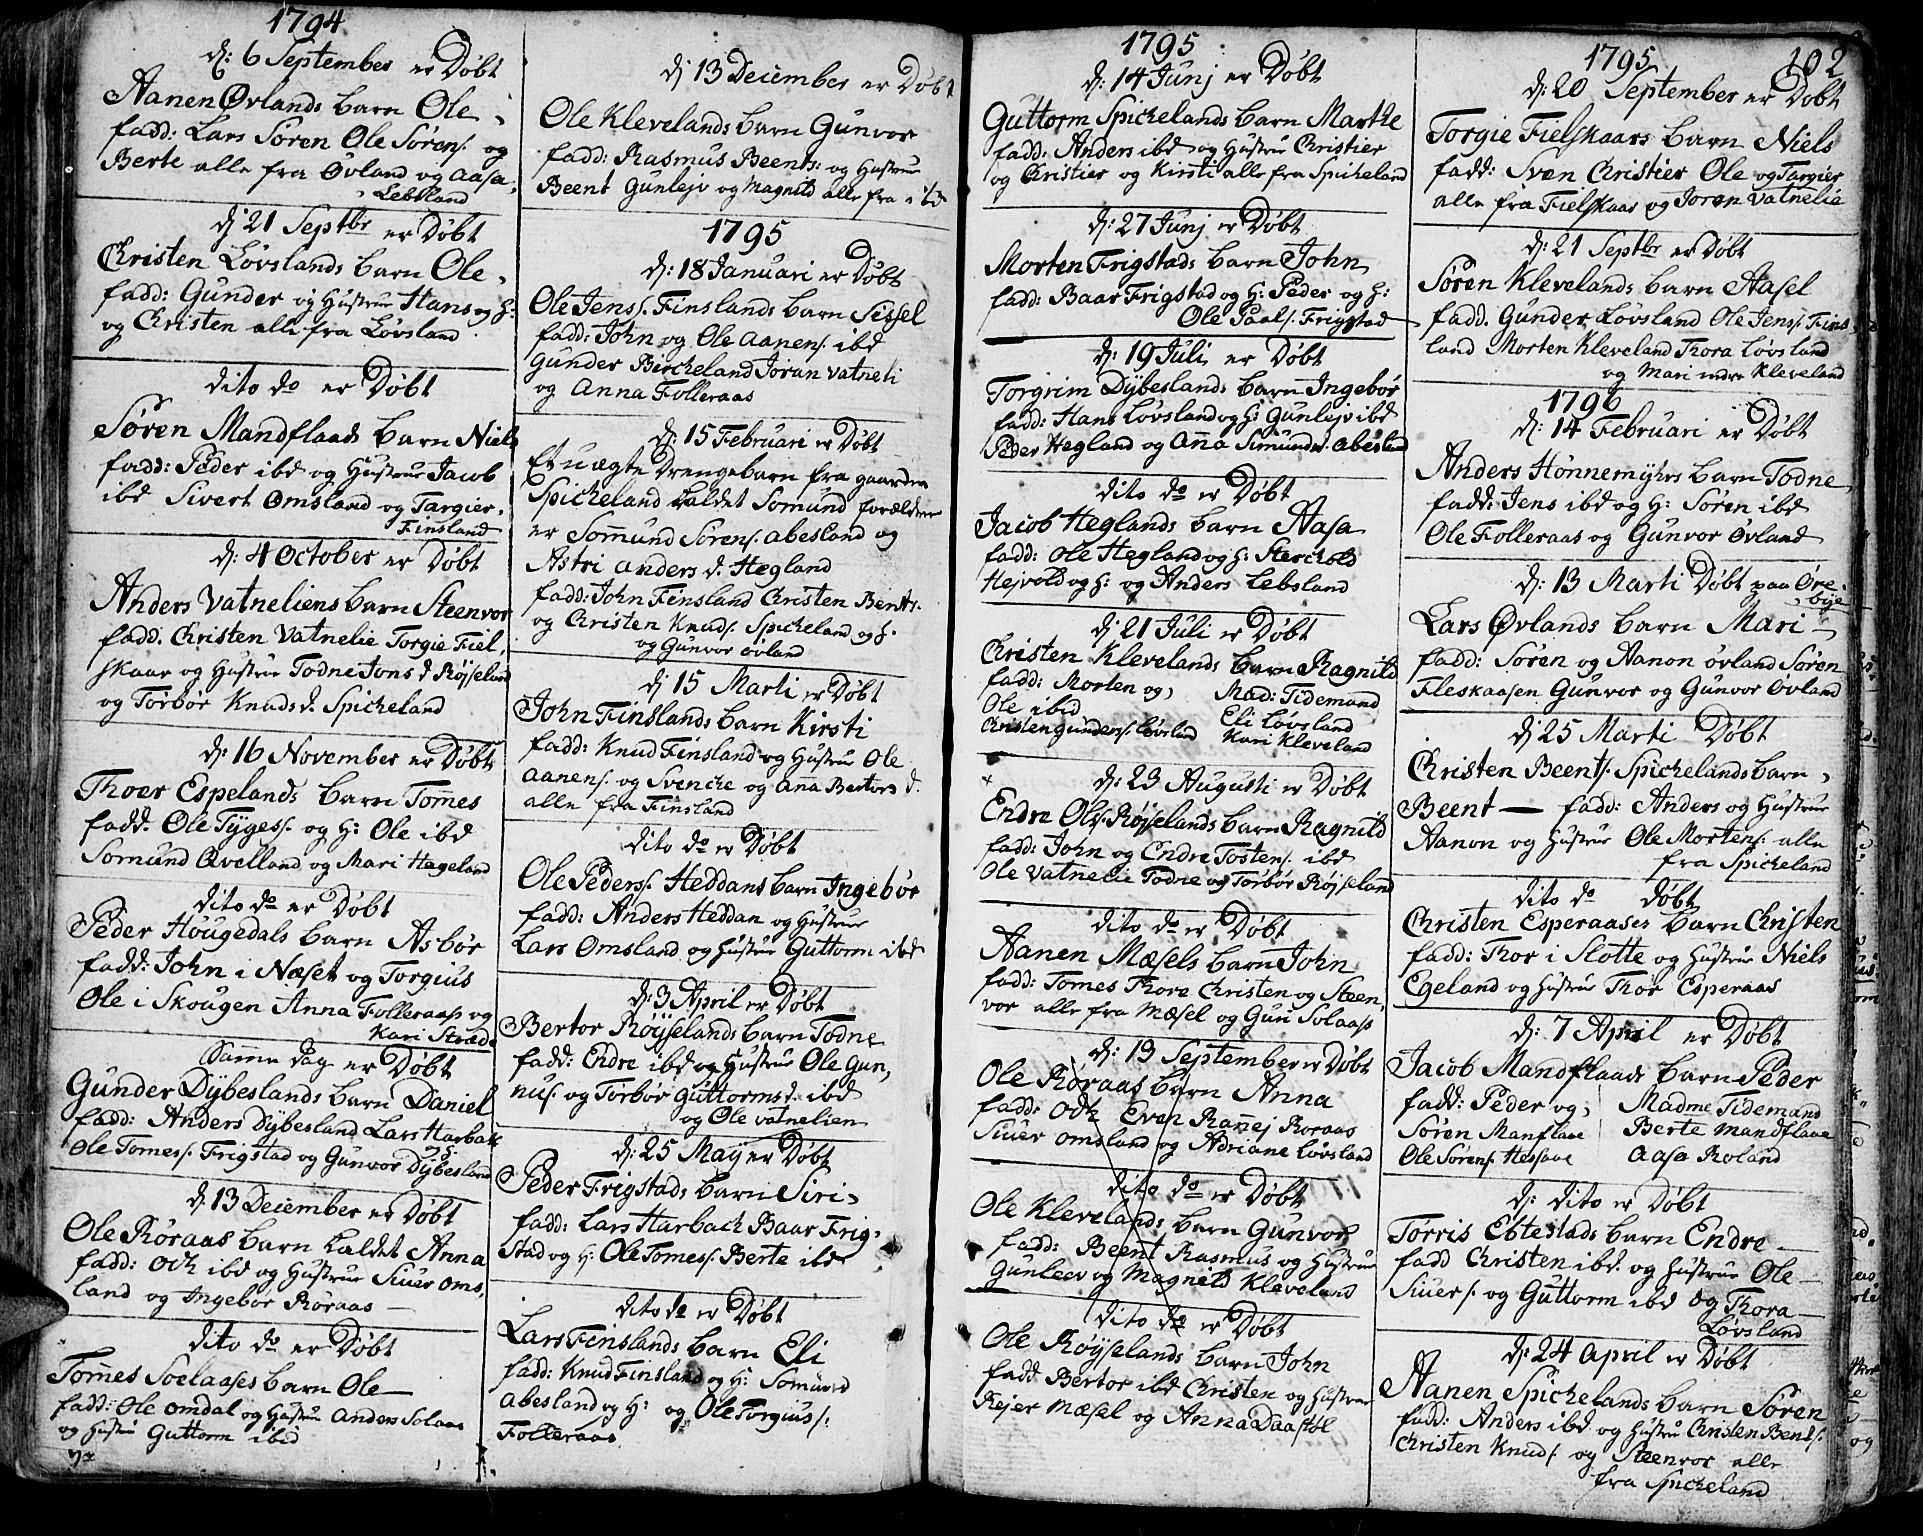 1794
dj: 6 September er Døbt
Aanen Øvlands barn Ole
fadd: Lars Søren Ole Sørens: og
Berte alle fra Øvland og Aasa
Lebsland
dj 21 Septbr er Døbt
Christen Løvslands barn Ole
fadd: Gunder og Hustrue Hans og H:
og Christen alle fra Løvsland
dito do er Døbt
Søren Mandflaads barn Niels
fadd: Peder ibd og Hustrue Jacob
ibd Sivert Omsland og Targier
Finsland
dj: 4 October er Døbt
Anders Vatneliens barn Steenvor
fadd. Christen Vatnelie Torgie Fiel,
skaar og Hustrue Todne Jons d Røjseland
og Torbør Knuds d. Spicheland
dj: 16 November er Døbt
Thoer Espelands barn Tomes
fadd. Ole Tyges: og H: Ole ibd
Somund Qvelland og Mari Hageland
dito do er Døbt
Peder Hougedals barn Asbør
fadd: John i Næset og Torgius
Ole i Skougen Anna Folleraas og
Kari Stræd
Samme Dag er Døbt
Gunder Dÿbeslands barn Daniel
fadd: Anders Dÿbesland Lars Harbak
Ole Tomes: Frigstad og Gunvor Dÿbesland
dj 13 December er Døbt
Ole Røraas barn kaldet Anna
fadd: Odk ibd og Hustrue Siuer Oms,
land og Ingebør Røraas —
dito do er Døbt
Tomes Soelaases barn Ole —
fadd: Ole Omdal og Hustrue Anders Solaas
og Hustrue Guttorm ibid
dj 13 December er Døbt
Ole Klevelands barn Gunvor
fadd: Rasmus Beents: og Hustrue
Beent Gunlejv og Magnild alle fra ibd
1795
dj: 18 Januari er Døbt
Ole Jens: Finslands barn Sissel
fadd: John og Ole Aanens: ibd
Gunder Bircheland Joran Vatneli
og Anna Folleraas
dj: 15 Februari er Døbt
Et uægte Drengebarn fra gaarden
Spicheland kaldet Somund forældrer
er Somund Sørens: Abesland og
Astri Anders d. Hegland
fadd: John Finsland Christen Bents:
og Christen Knuds: Spicheland og H:
og Gunvor Øvland
dj 15 Marti er Døbt
John Finslands barn Kirsti
fadd: Knud Finsland og Hustrue Ole
Aanens: og Svencke og Anna Bertors d.
alle fra Finsland
dito do er Døbt
Ole Peders: Heddans barn Ingebør
fadd: Anders Heddan og Hustrue
Lars Omsland og Hustrue Guttorm ibd
dj: 3 April er Døbt
Bertor Røÿselands barn Todne
fadd: Endre ibd og Hustrue Ole Gun,
nus: og Torbør Guttorms d. ibd
og Ole Vatnelien
dj: 25 Maÿ er Døbt
Peder Frigstads barn Siri
fadd: Lars Harbach Baar Frig-
stad og H: Ole Tomes: Berte ibd
dito do er Døbt
Lars Finslands barn Eli
fadd: Knud Finsland og H: Somund
Abesland og H: og Ole Torgius:
Folleraas
1795
dj: 14 Junj er Døbt
Guttorm Spichelands barn Marthe
fadd: Anders ibd og Hustrue Christier
og Christier og Kirsti alle fra Spicheland
dj: 27 Junj er Døbt
Morten Frigstads barn John
fadd: Baar Frigstad og H: Peder og H:
Ole Paals: Frigstad
dj: 19 Juli er Døbt
Torgrim Dÿbeslands barn Ingebør
fadd: Hans Løvsland og H: Gunlejv ibd
Peder Hegland og Anna Simunds d. Abesland
dito do er Døbt
Jacob Heglands barn Aasa
fadd: Ole Hegland og H: Sterchold
Hejvold og H: og Anders Lebsland
dj 21 Juli er Døbt
Christen Klevelands barn Ragnild
fadd: Morten og,
Ole ibid
Christen Gunders: Løvsland
Mad: Tidemand
Eli Løvsland
Kari Kleveland
dj: 23 Augusti er Døbt
Endre Ols: Røjselands barn Ragnild
fadd: John og Endre Tostens: ibd
Ole Vatnelie Todne og Torbør Røjseland
dito do er Døbt
Aanen Mæsels barn John
fadd: Tomes Thore Christen og Steen,
vor alle fra Mæsel og Guri Solaas
dj: 13 September er Døbt
Ole Røraas barn Anna
fadd: Odk Even Ranej Roraas
Siuer Omsland og Adriane Løvsland
dito do er Døbt
Ole Klevelands barn Gunvor
fadd: Beent Rasmus og Hustrue
Gunleev og Magnild Kleveland
dito do er Døbt
Ole Røÿselands barn John
fadd Bertor ibd Christen og Hustrue
Rejer Mæsel og Anna Daastøl
1795
102
dj: 20 September er Døbt
Torgie Fielskaars barn Niels
fadd: Sven Christier Ole og Targier
alle fra Fielskaar og Joren Vatnelie
dj: 21 Septbr er Døbt
Søren Klevelands barn Aasel
fadd. Gunder Løvsland Ole Jens: Fins
land Morten Kleveland Thora Løvsland
og Mari indre Kleveland
1796
dj: 14 Februari er Døbt
Anders Hønnemÿhrs barn Todne
fadd: Jens ibd og H: Søren ibd
Ole Folleraas og Gunvor Øvland
dj: 13 Marti Døbt paa Øre-
bye
Lars Øvlands barn Mari —
fadd: Søren og Aanon Øvland Søren
Fleskaasen Gunvor og Gunvor Øvland
dj 25 Marti Døbt
Christen Beents: Spichelands barn
Beent — fadd: Anders og Hustrue
Aanon og Hustrue Ole Mortens: alle
fra Spicheland
dito do Døbt
Christen Esperaases barn Christen
fadd: Thor i Slotte og Hustrue Niels
Egeland og Hustrue Thor Esperaas
dj: 7 April er Døbt
Jacob Mandflaads barn Peder
fadd: Peder og,
Søren Manflaae
Ole Sørens: Hessaae
Madme Tidemand
Berte Mandflaae
Aasa Roland
dj: dito er Døbt
Torris Ebtestads barn Endre —
fadd Christen ibd. og Hustrue Ole —
Siuers: og Guttorm ibd og Thora
Løvsland
dj: 24 April er Døbt
Aanen Spichelands barn Søren
fadd: Anders ibd og Hustrue Christen Bents:
Christen Knuds: og Steenvor alle
fra Spicheland